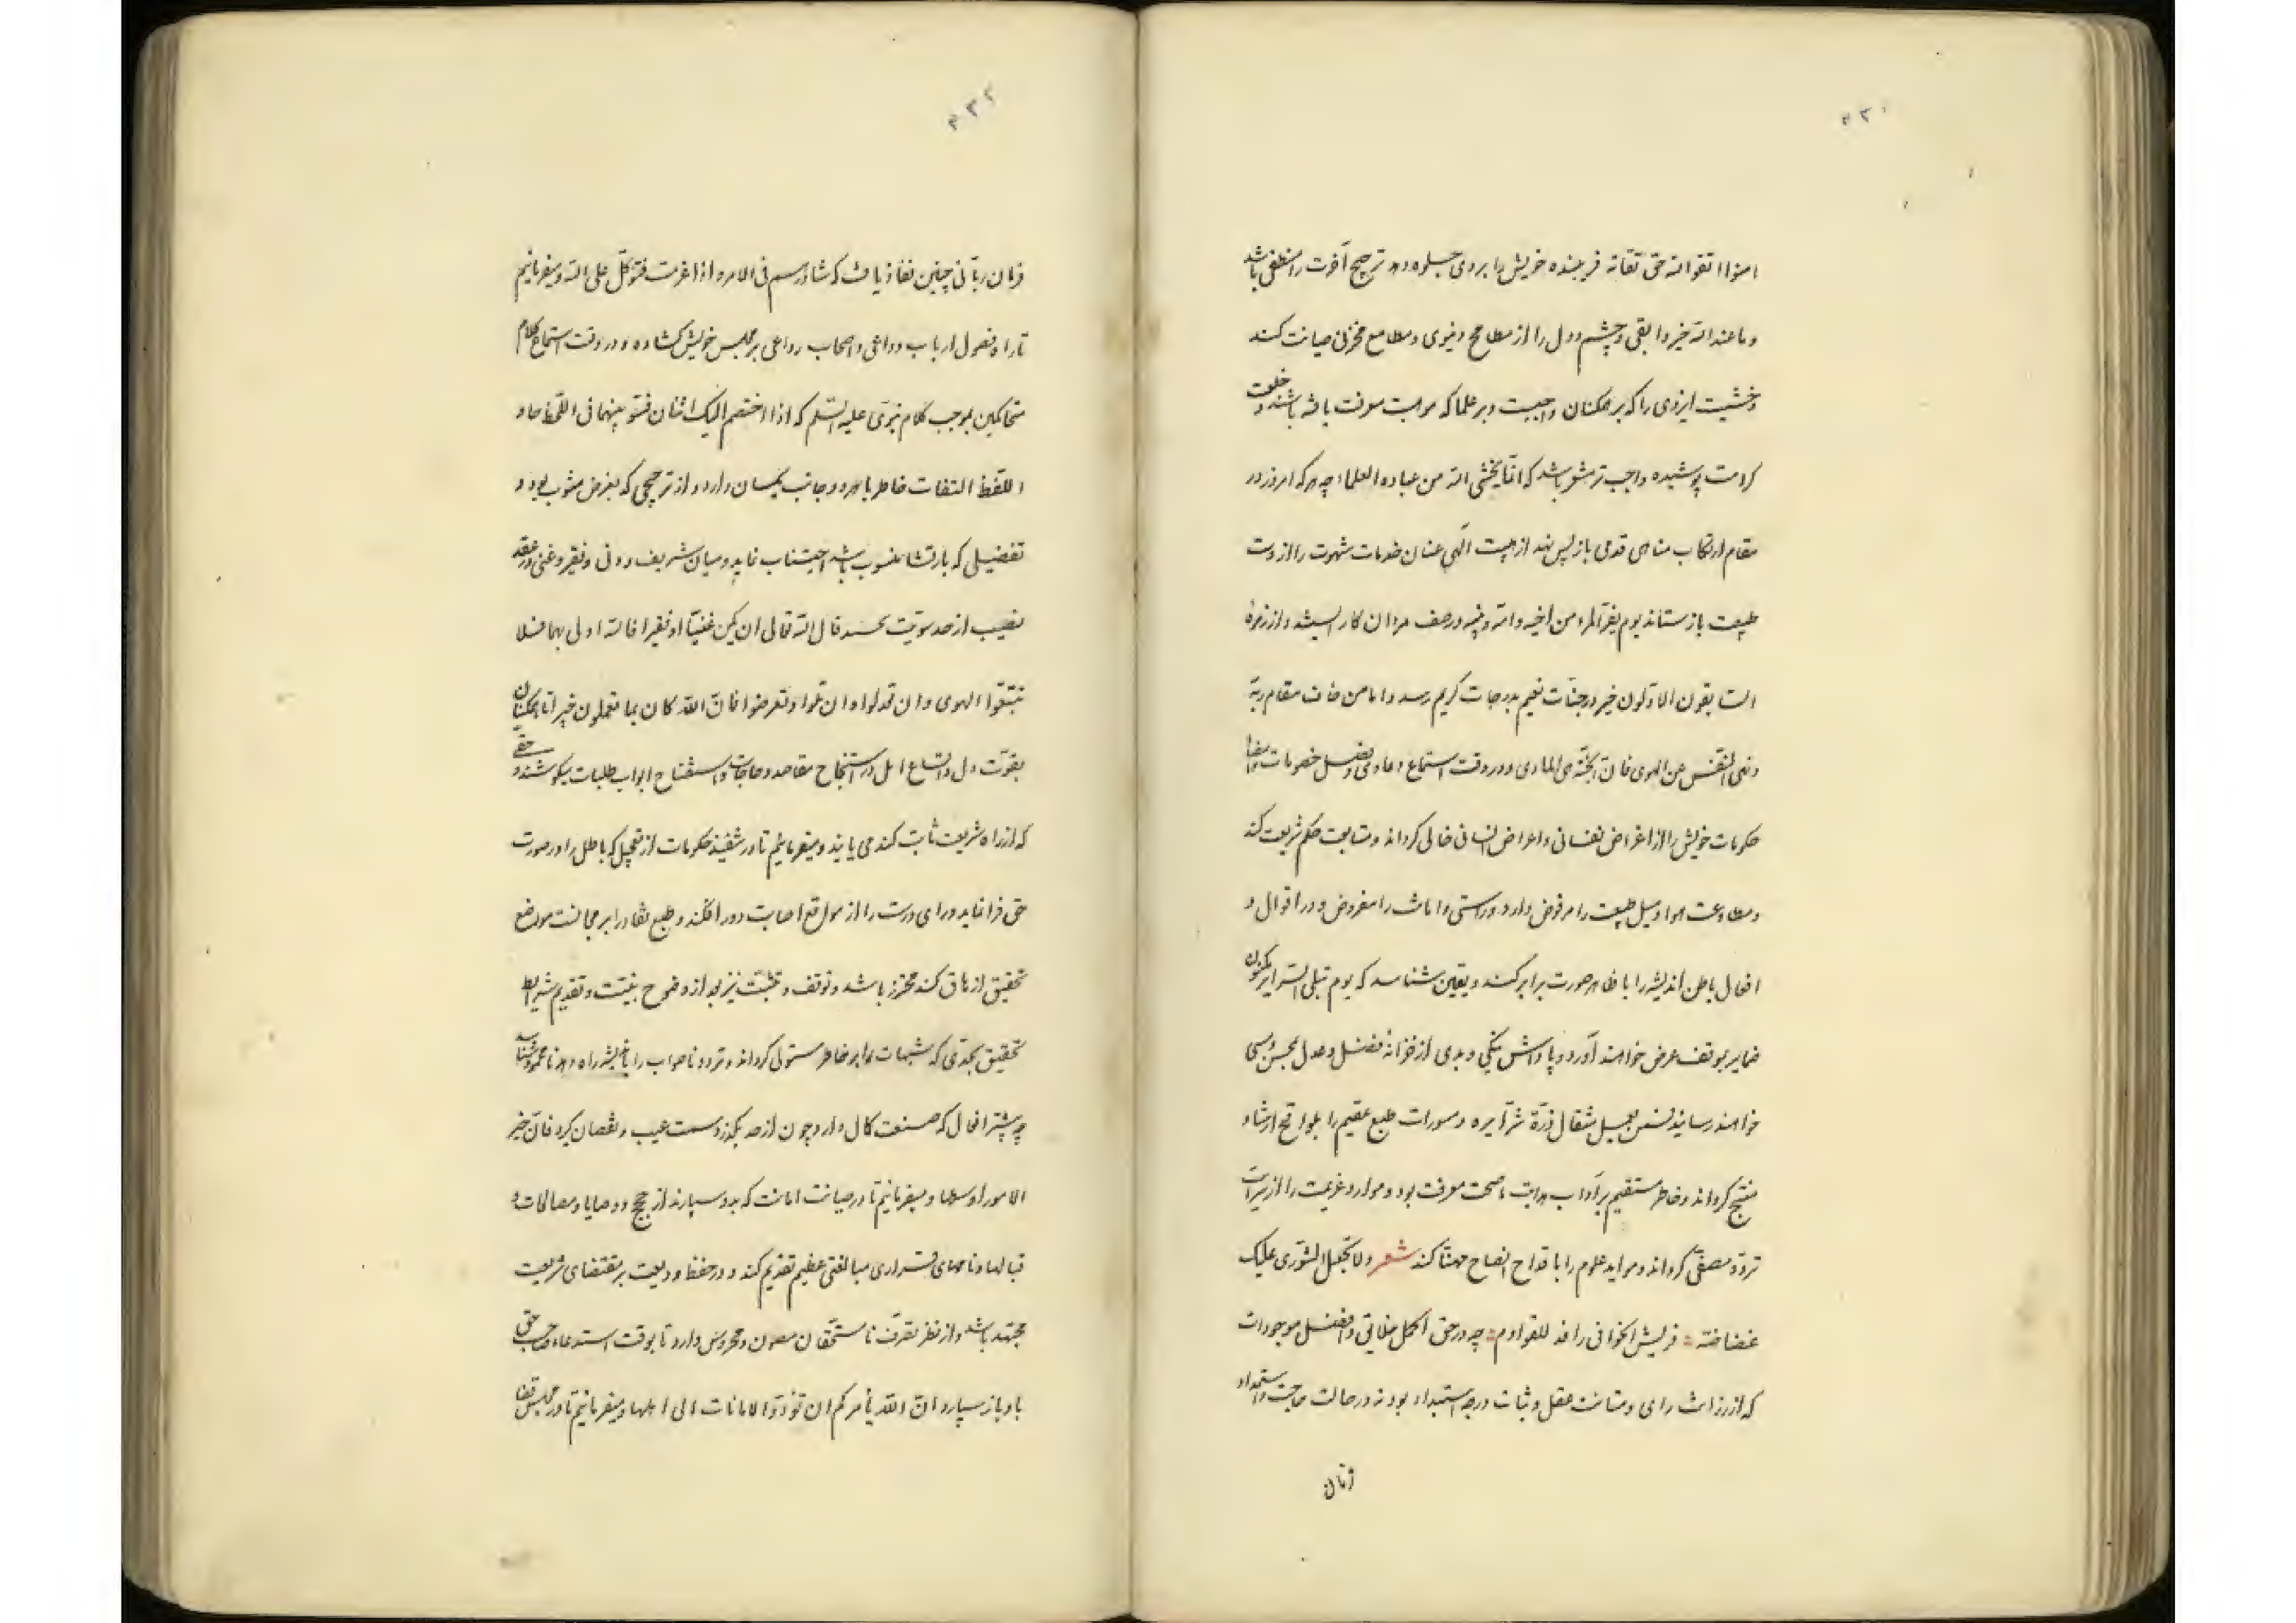 امنوا اتقوا الله حق تقاته فریبنده خویش را بروی جلوه دهد ترجیح آخرت را
وما عند الله خیر وابقی وچشم ودل را از مطامح دنیوی ومطامع مخزنی صیانت کند
وخشیت ایزدی را که بر همکنان واجبست وبر علما که موهبت معرفت یافته باشند وخلعت
کرامت پوشیده واجب تر مشعر باشد که انما یخشی الله من عباده العلماء چه هر که امروز در
مقام ارتکاب مناهی قدمی باز پس نهد از هیبت الهی عنان خدمات شهوت را از دست
طبیعت باز ستاند یوم یفر المرء من اخیه وامه وابیه در صف مردان کار بایستد واز زمرهٔ
السابقون الاولون خیر در جنات نعیم بدرجات کریم رسد واما من خاف مقام ربه
ونهی النفس عن الهوی فان الجنة هی الماوی ودر وقت استماع دعاوی وفصل خصومات
حکومات خویش را از اغراض نفسانی واعراض انسانی خالی گرداند ومتابعت حکم شریعت کند
ومطاوعت هوا ومیل طبیعت را مرفوض دارد وراستی وامانت را مفروض ودر اقوال و
افعال باطن اندیشه را با ظاهر صورت برابر کند ویقین شناسد که یوم تبلی السرایر مکنون
ضمایر بموقف عرض خواهند آورد وپاداش نیکی وبدی از خزانهٔ فضل وعدل بمحسن ومسی
خواهند رسانید فمن یعمل مثقال ذرة شرا یره ومسورات طبع عقیم را بلواقح ارشاد
منتج گرداند وخاطر مستقیم بر آداب هدایت ناصحت معرفت بود وموارد عزیمت را از
تردد مصفی گرداند وموارد علوم را با قداح انصاح مهنا کند شعر ولا تجعل الشوری علیک
غضاضة فریش الخوافی رافد للقوادم چه در حق اکمل خلایق وافضل موجودات
که از رزانت رای ومتانت عقل وثبات درجه استبداد بود نه در حالت حاجت واستمداد
فرمان
فرمان ربانی چنین نفاذ یافت که شاورهم فی الامر واذا عزمت فتوکل علی الله ومیفرمائیم
تا راه فصول ارباب دواعی واصحاب دواعی بر مجلس خویش گشاده ودر وقت استماع کلام
متحاکمین بموجب کلام نبوی علیه السلم که اذا اختصم الیک اثنان فسو بینهما فی اللحظ حا و
اللفظ التفات خاطر با هر دو جانب یکسان دارد واز ترجیحی که بغرض مشوب بود و
تفضیلی که بارتشا منسوب باشد اجتناب نماید ومیان شریف ودنی وفقیر وغنی در عقد
نصیب از حد سویت بحسد قال الله تعالی ان یکن غنیا او فقیرا فالله اولی بهما فلا
تتبعوا الهوی وان تعدلوا وان تلوا او تعرضوا فان الله کان بما تعملون خبیرا تا همکنان
بقوت دل واتساع امل در استنجاح مقاصد وحاجات واستفتاح ابواب طلبات میکوشند وحقی
که از راه شریعت ثابت کند می یابند ومیفرمائیم تا در تنفیذ حکومات از تعجیل که باطل را در صورت
حق فرا نماید ورای درست را از مواقع اصابت دور افکند وطبع نقاد را بر مجانست مواضع
تحقیق ازهاق کند محترز باشد وتوقف وتثبت نیز بعد از وضوح بینت وتقدیم شرایط
تحقیق بحدی که شبهات را بر خاطر مستولی گرداند وتردد ناصواب را باندیشه راه دهد نامحمود شناسد
چه بیشتر افعال که صنعت کمال دارد چون از حد بگذرد سمت عیب ونقصان گیرد فان خیر
الامور اوسطها ومیفرمائیم تا در صیانت امانت که بدو سپارند از حجج ووصایا ومصالحات و
قبالها ونامهای قسراری مبالغتی عظیم تقدیم کند ودر حفظ ودیعت بر مقتضای شریعت
مجتهد باشد واز نظر تصرف نامستحقان مصون ومحروس دارد تا بوقت استدعاء صاحب حق
با او باز سپارد ان الله یأمرکم ان تؤدوا الامانات الی اهلها ومیفرمائیم تا در مجلس قضا